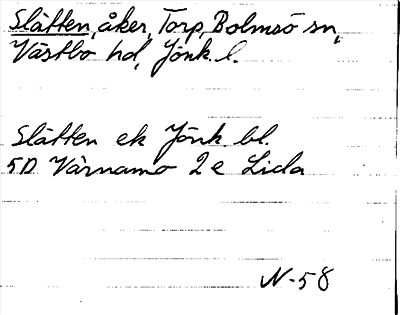 Slätten, åker, Torp, Bolmsö sn,
Västbo hd, Jönk. l.
Slätten ek Jönk bl.
5D Värnamo 2e Lida
N-58